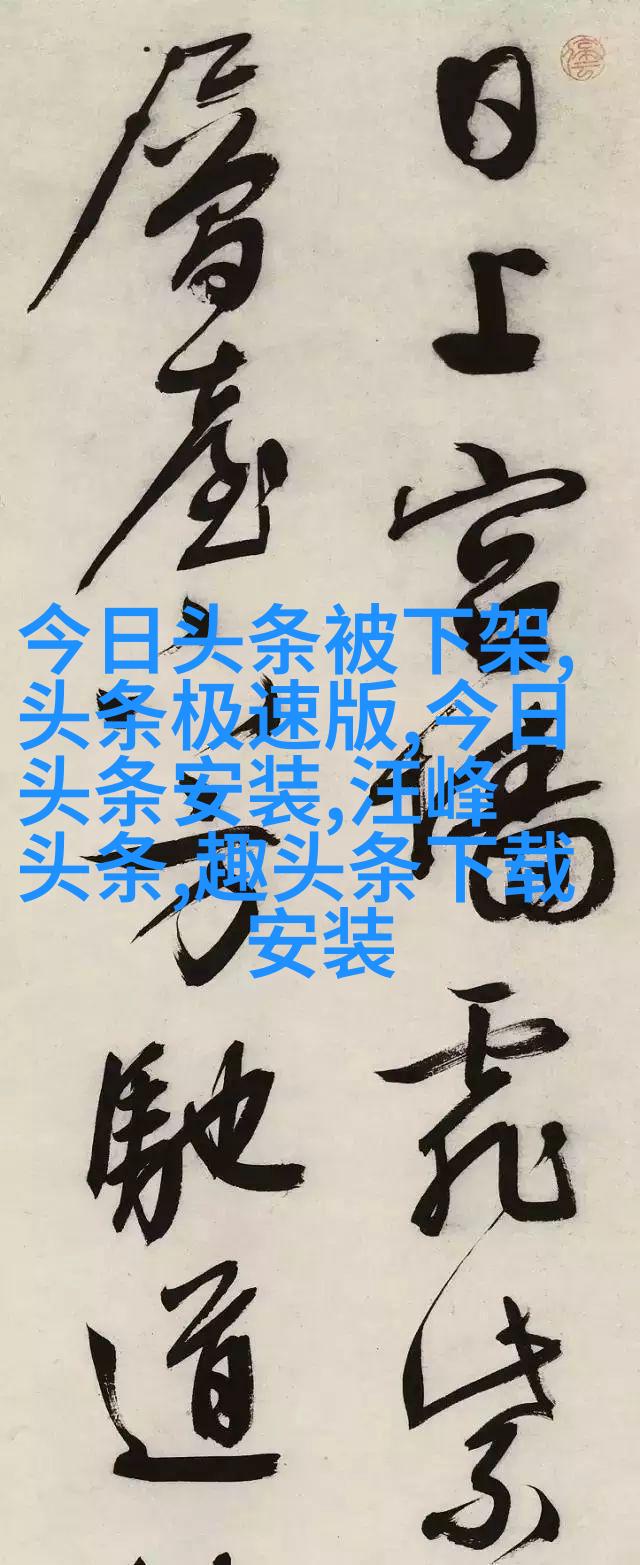 日上宮墻霏紫
層臺下方馳道
今日头条被下架,
头条极速版,今日
头条安装,汪峰
头条,趣头条下载
安装